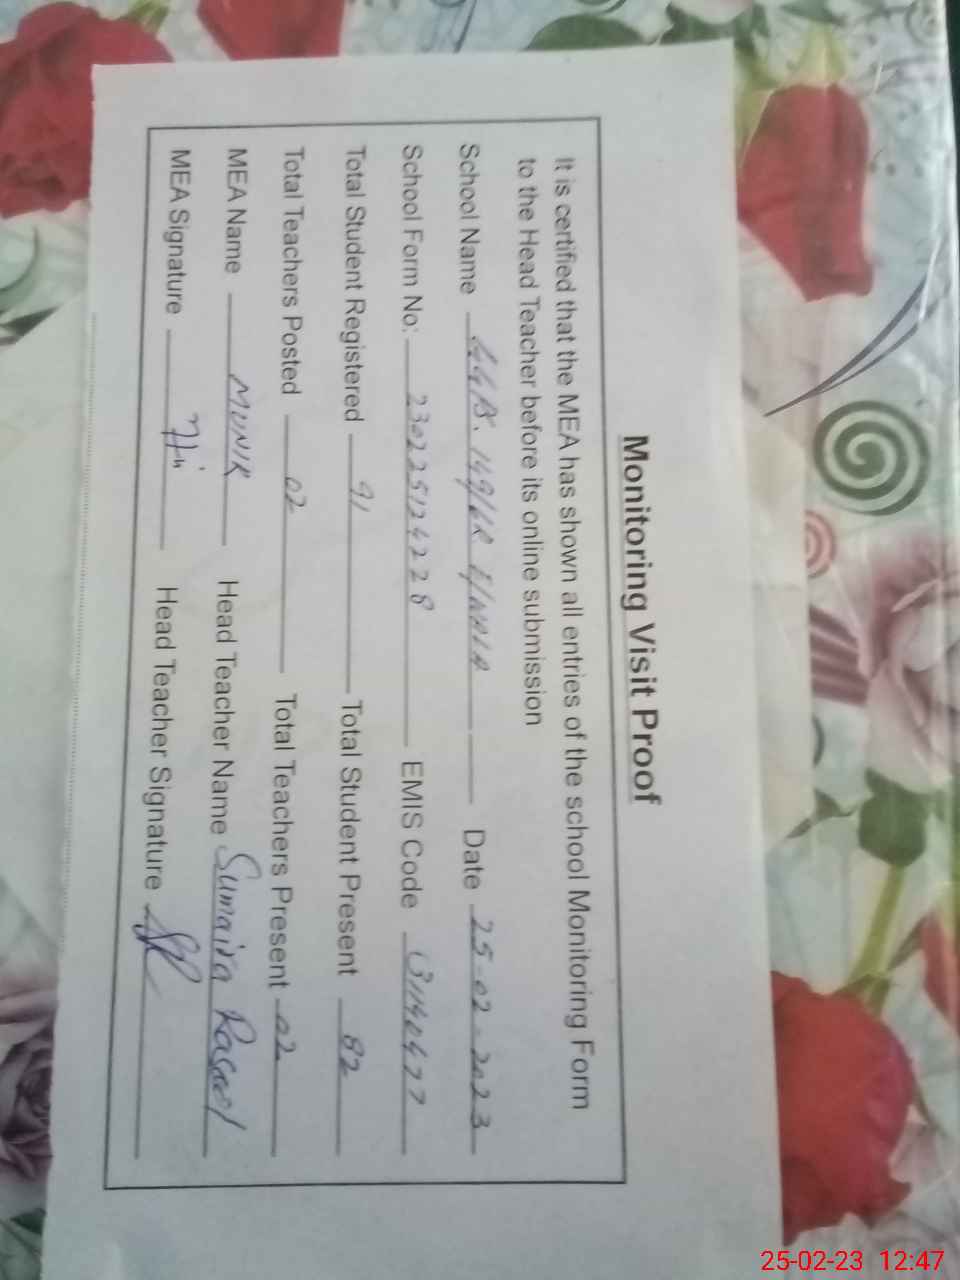 Monitoring Visit Proof
It is certified that the MEA has shown all entries of the school Monitoring Form
to the Head Teacher before its online submission
School Name 149/6R Date 25-02-2023
School Form No: 230225124228 EMIS Code 31140477
Total Student Registered 91 Total Student Present 82
Total Teachers Posted 02 Total Teachers Present 02
MEA Name MUNIR Head Teacher Name Sumaira Rasool
MEA Signature Head Teacher Signature
25-02-23 12:47